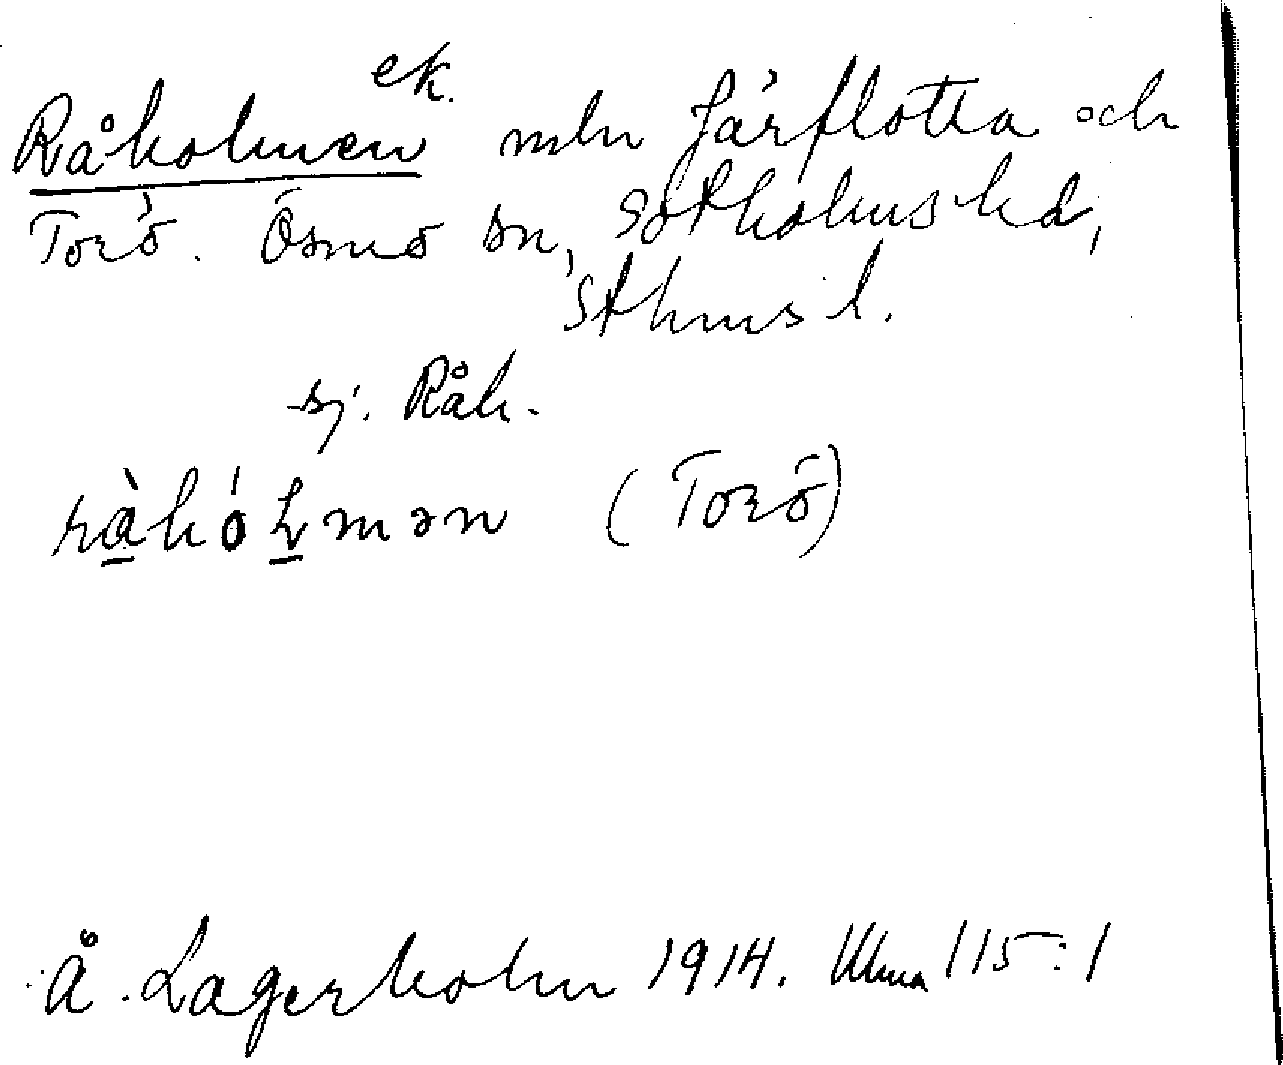 Råholmen ek. mln Järflotta och
Torö. Ösmo sn, Sotholms hd,
Sthms l.
sj. Råh.
ràhólmən (Torö)
Å. Lagerholm 1914. 115:1